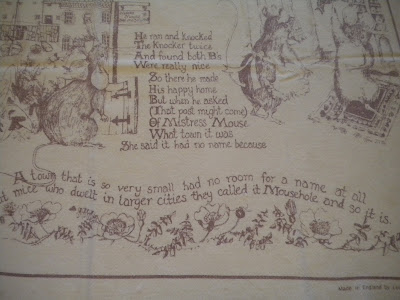 He ran and knocked
The knocker twice
And found both B's
Were really nice
So there he made
His happy home
But when he asked
(That post might come)
Of Mistress Mouse
What town it was
She said it had no name because
A town that is so very small had no room for a name at all
mice who dwelt in larger cities they called it Mousehole and so it is.
Made in England by